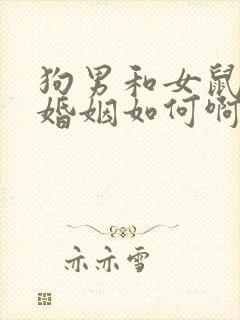 狗男和女鼠
婚姻如何啊
亦亦雪